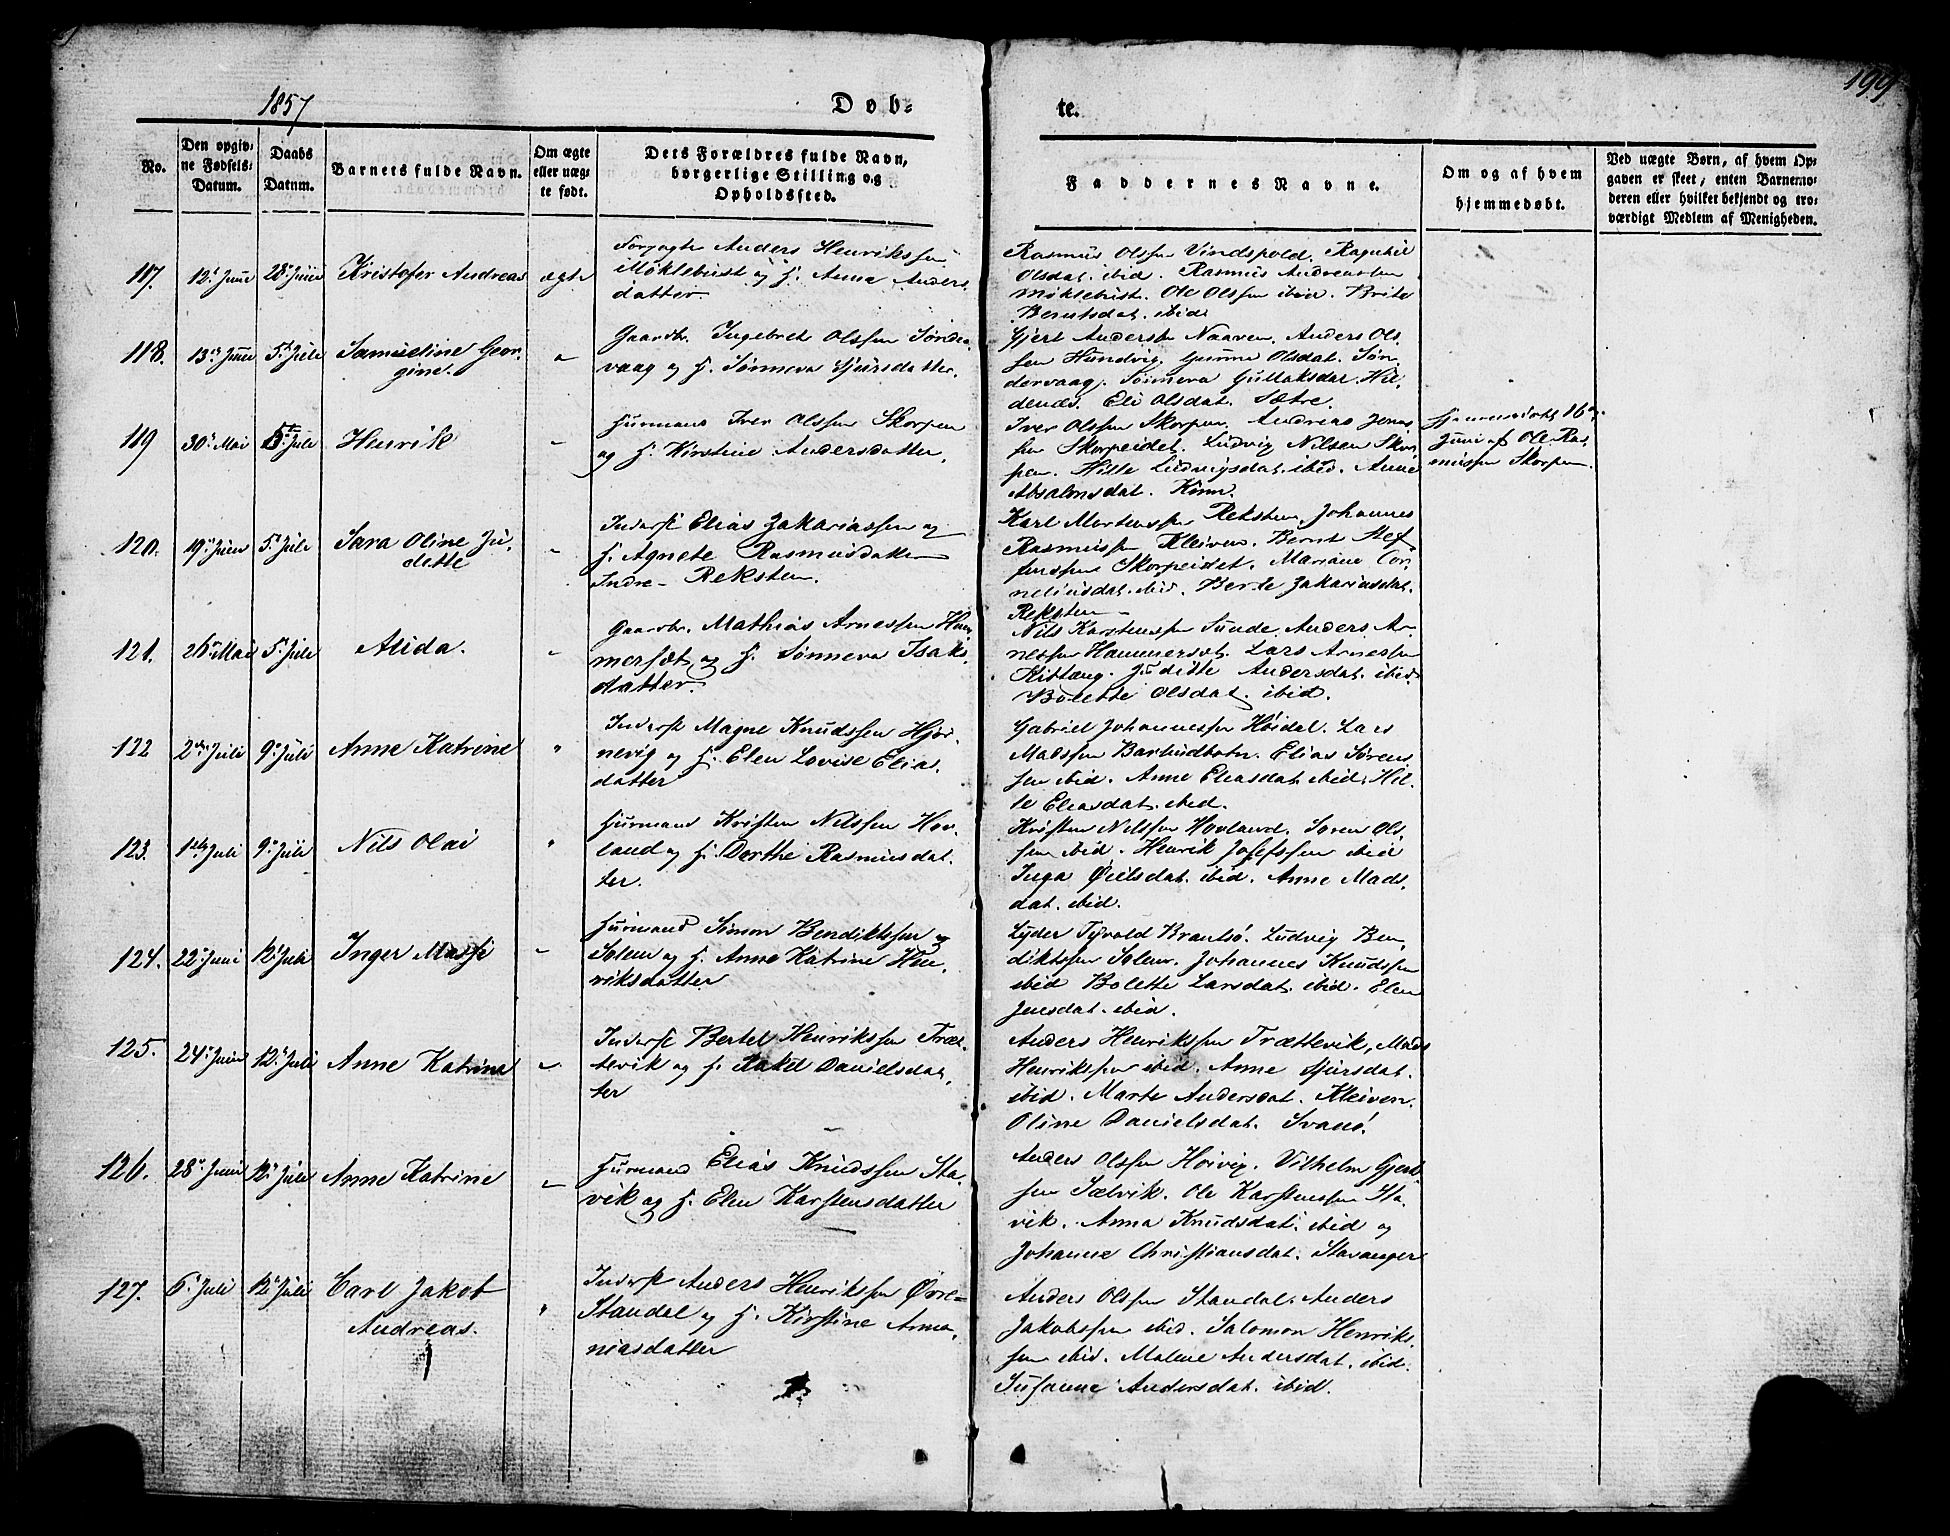 199
1857
Døb-
te.
No.
Den opgiv-
ne Fødsels-
Datum.
Daabs
Datum.
Barnets fulde Navn.
Om ægte
eller uæg-
te født.
Dets Forældres fulde Navn,
borgerlige Stilling og
Opholdssted.
Faddernes Navne.
Om og af hvem
hjemmedøbt.
Ved uægte Børn, af hvem Op-
gaven er skeet, enten Barnemo-
deren eller hvilket bekjendt og tro-
værdigt Medlem af Menigheden.
117. 12te Juni 28de Juni Kristofer Andreas ægte
Forpagte Anders Henrikssen
Møklebust og H. Anna Anders
datter.
Rasmus Olssen Vindspold. Ragnhil
Olsdat. ibid. Rasmus Andreassen
Møklebust. Ole Olssen ibid. Brite
Berntsdat. ibid.
118. 13de Juni 5te Juli Samueline Geor-
gine.
Gaardbr. Ingebret Olssen Sønder
vaag og H. Sønneva Sjursdatter.
Gjert Anderss Naaven. Anders Ols-
sen Hundvig. Gunne Olsdat. Søn-
dervaag. Sønneva Gullaksdat. Hil-
denæs. Eli Olsdat. Sætre.
119 30te Mai 5te Juli Henrik
Huusmand Iver Olssen Skorpen
og H. Kirstine Andersdatter.
Iver Olssen Skorpen. Andreas Jens-
sen Skorpeidet. Ludvig Nilsen Skor-
pen. Hille Ludvigsdat. ibid. Anne
Absalonsdat. Kinn.
Hjemmedøbt 16de
Juni af Ole Ras-
mussen Skorpen.
120. 19de Juni 5te Juli Sara Oline Ju-
ditte
Inderst Elias Zakariassen og
H. Agnete Rasmusdatter
Indre-Reksten.
Karl Mortenssen Reksten. Johannes
Rasmussen Kleiven. Bernt Stef-
fenssen Skorpeidet. Mariane Cor-
neliusdat. ibid. Berte Zakariasdat.
Reksten
121. 26de Mai 5te Juli Alida.
Gaardbr. Mathias Arnessen Ham-
mersæt og H. Sønneva Isaks-
datter.
Nils Karstenssen Sunde. Anders Ar-
nessen Hammerset. Lars Arnessen
Kittang. Juditte Andersdat. ibid.
Bolette Olsdat. ibid.
122 2den Juli 9de Juli Anne Katrine
Inderst Magne Knudssen Hjor-
nevig og H. Elen Lovise Elias-
datter
Gabriel Johannessen Høidal. Lars
Madssen Barlindbotn. Elias Søren-
sen ibid. Anne Eliasdat. ibid. Hil-
le Eliasdat. ibid.
123. 1ste Juli 9de Juli Nils Olai
Huusmand Kristen Nilssen Hov-
land og H. Dorthe Rasmusdat-
ter.
Kristen Nilssen Hovland. Søren Ols-
sen ibid. Henrik Josefssen ibid
Inga ibid. Anne Mads-
dat. ibid.
124. 22de Juni 12te Juli Inger Massi
Huusmand Simon Bendiktssen
Solem og H. Anne Katrine Hen-
riksdatter
Lyder Brantsø. Ludvig Ben-
diktssen Solem. Johannes Knudssen
ibid Bolette Larsdat. ibid. Elen
Jensdat. ibid.
125. 24de Juni 12te Juli Anne Katrine
Inderst Bertel Henrikssen Træt-
tevik og H. Rakel Danielsdat-
ter
Anders Henrikssen Trættevik, Mads
Henrikssen ibid. Anne Sjursdat.
ibid. Marte Andersdat. Kleiven.
Oline Danielsdat. Svanø.
126. 28de Juni 12te Juli Anne Katrine
Huusmand Elias Knudssen Sta-
vik og H. Elen Karstensdatter
Anders Olssen Høivig. Vilhelm Gjert-
sen Sælvik. Ole Karstenssen Sta-
vik. Anna Knudsdat. ibid og
Johanne Christiansdat. Stavanger
127. 6te Juli 12te Juli Carl Jakob
Andreas.
Inderst Anders Henrikssen Øvre-
Standal og H. Kirstine Anna-
niasdatter
Anders Olssen Standal. Anders
Jakobssen ibid. Salomon Henriks-
sen ibid. Malene Andersdat. ibid.
Susanne Andersdat. ibid.